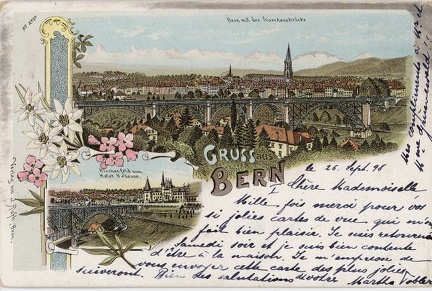 Bern mit der Kornhausbrücke
GRUSS
BERN
Kirchenfeld vom
Hotel Bellevue.
le 25 Sept. 98
Chère Mademoiselle
Mille fois merci pour vos
si jolies cartes de vue qui m'ont
fait bien plaisir. Je suis retournée
Samedi soir et je suis bien contente
d'être à la maison. Je m'empresse de
vous envoyer cette carte des plus jolies
suiveront. Bien des salutations de votre
Martha
Mes compliments à